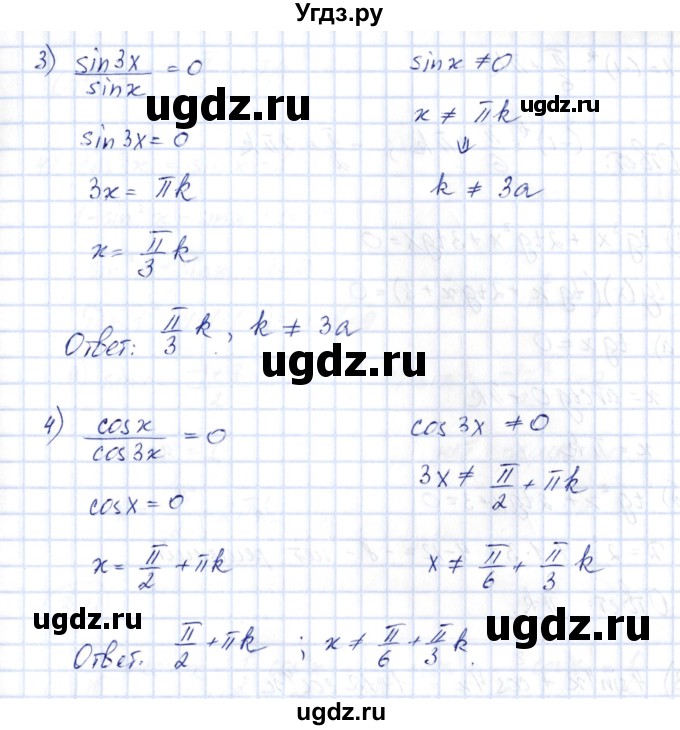 Угдз.ру
3) sin3x/sinx = 0    sinx ≠ 0
ugdz.ru    x ≠ πk    ugdz.ru
sin3x = 0    ⇓
3x = πk    k ≠ 3a
x = π/3 k
ugdz.ru
Ответ: π/3 k, k ≠ 3a
ugdz.ru
4) cosx/cos3x = 0    cos3x ≠ 0
ugdz.ru
cosx = 0    3x ≠ π/2 + πk
x = π/2 + πk    x ≠ π/6 + π/3 k
ugdz.ru    ugdz.ru
Ответ. π/2 + πk ; x ≠ π/6 + π/3 k.
ugdz.ru